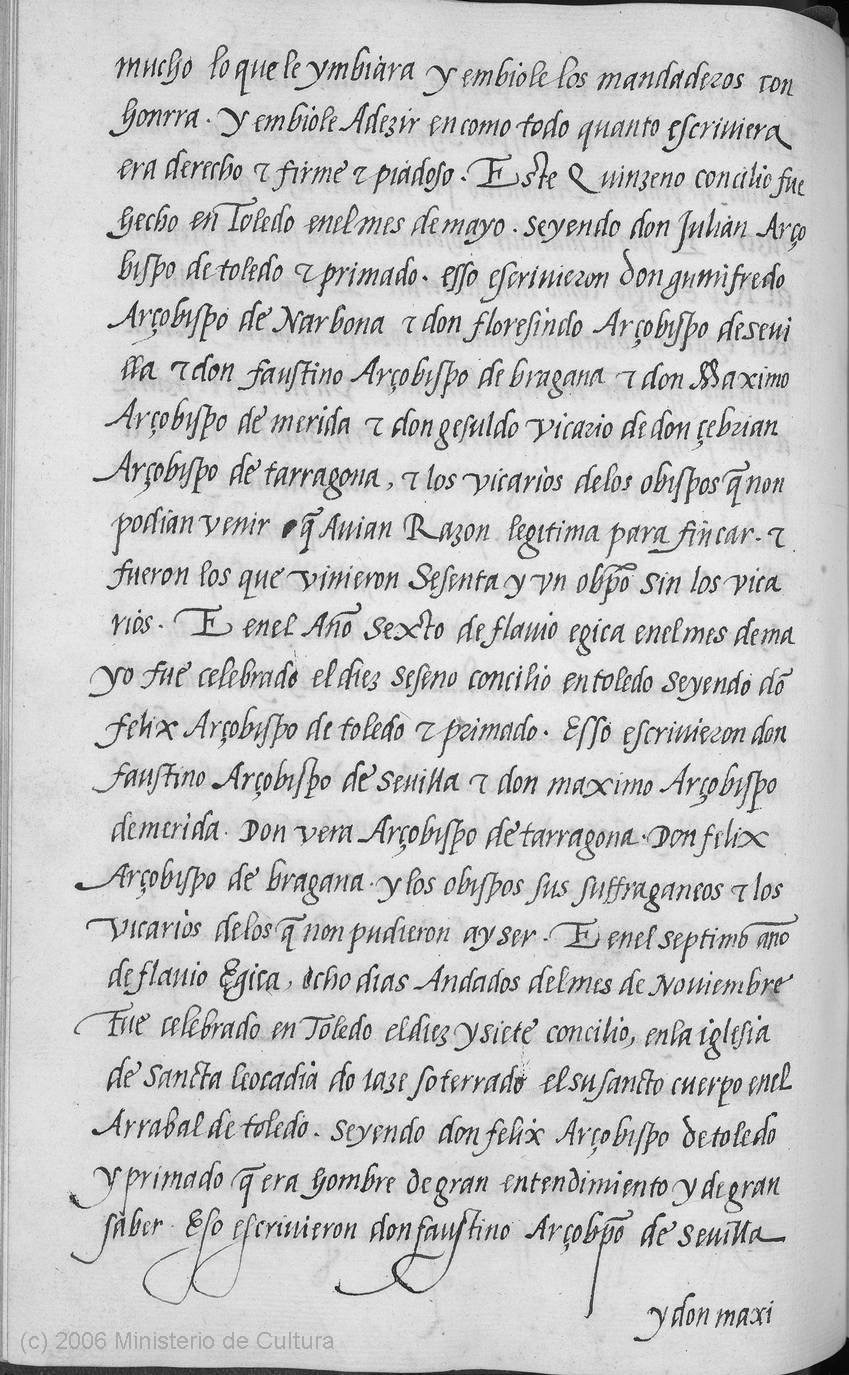 mucho lo que le ymbiara y embiole los mandaderos con
honrra. y embiole Adezir en como todo quanto escriviera
era derecho ⁊ firme ⁊ piadoso. Este Quinzeno concilio fue
hecho en Toledo enel mes de mayo. seyendo don Julian Arço
bispo de toledo ⁊ primado. esso escrivieron don gumifredo
Arçobispo de Narbona ⁊ don floresindo Arçobispo de sevi
lla ⁊ don faustino Arçobispo de bragana ⁊ don Maximo
Arçobispo de merida ⁊ don gesuldo vicario de don çebrian
Arçobispo de tarragona, ⁊ los vicarios delos obispos q̃ non
podian venir q̃ Avian Razon legitima para fincar. ⁊
fueron los que vinieron Sesenta y vn obp̃o sin los vica
rios. E enel Año sexto de flavio egica enel mes de ma
yo fue celebrado el diez seseno concilio en toledo seyendo dõ
felix Arçobispo de toledo ⁊ primado. Esso escrivieron don
faustino Arçobispo de sevilla ⁊ don maximo Arçobispo
de merida. Don vera Arçobispo de tarragona. Don felix
Arçobispo de bragana. y los obispos sus suffraganeos ⁊ los
vicarios delos q̃ non pudieron ay ser. E enel septimo año
de flavio Egica, ocho dias Andados del mes de Noviembre
Fue celebrado en Toledo el diez y siete concilio, en la iglesia
de Sancta leocadia do iaze soterrado el su sancto cuerpo enel
Arrabal de toledo. seyendo don felix Arçobispo de toledo
y primado q̃ era hombre de gran entendimiento y de gran
saber. Eso escrivieron don faustino Arçobp̃o de sevilla
y don maxi
(c) 2006 Ministerio de Cultura